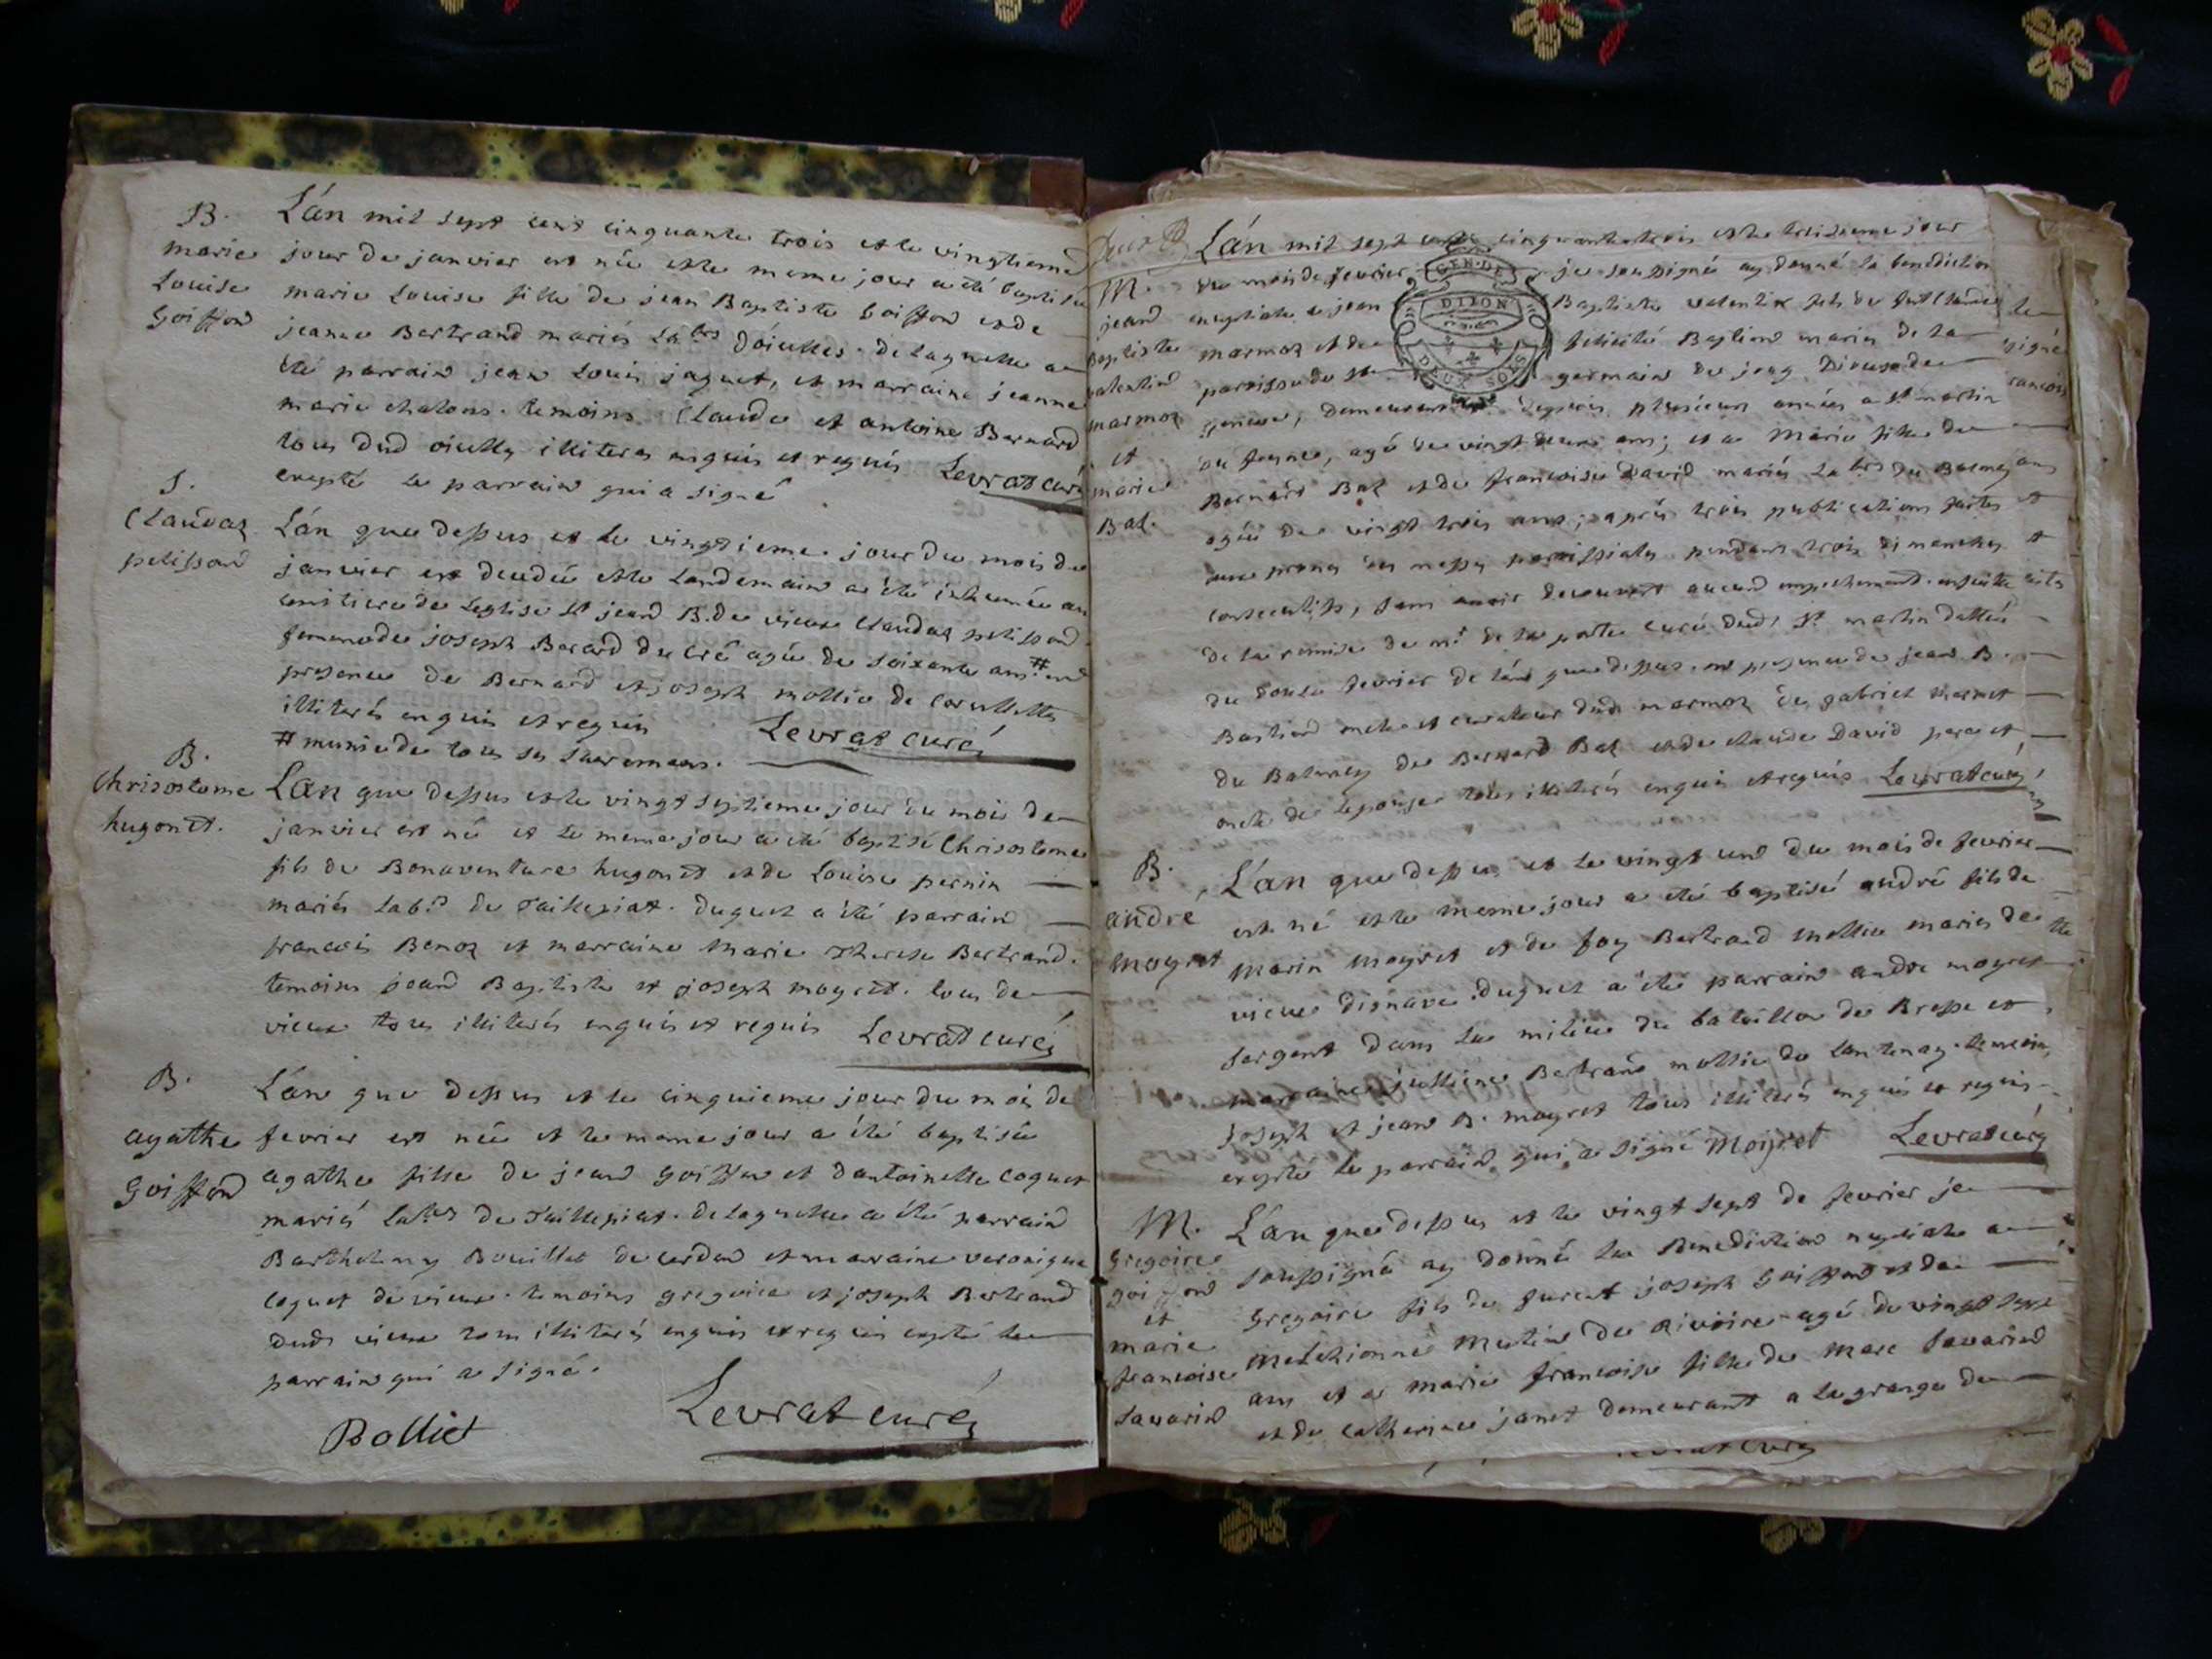 B.
marie
Louise
Goiffon
Lán mil sept cent cinquante trois et le vingtieme
jour de janvier est née et le meme jour a été baptisée
marie Louise fille de jean Baptiste Goiffon et de
jeanne Bertrand mariés lab.rs dóiselles. de laquelle a
été parrain jean Louis jaquet, et marraine jeanne
marie chatons. temoins Claude et antoine Bernard
tous dud illiterés enquis et requis
excepté le parrain qui a signé Levrat curé
S.
Claudaz
pelisson
Lán que dessus et le vingtieme jour du mois de
janvier est decedée et le landemain a été inhumée au
cemitiere de leglise St jean B. de vieux Claudaz pelisson
femme de joseph Berard du cré agée de soixante ans # en
presence de Bernard et joseph mollie de Corcellette
illiterés enquis et requis Levrat curé
# munie de tous ses sacremens.
B.
Chrisostome
hugonet.
Lán que dessus et le vingt septieme jour du mois de
janvier est né et le meme jour a été baptisé Chrisostome
fils de Bonaventure hugonet et de Louise pernin
mariés lab.rs de Taillepiat. duquel a été parrain
francois Benoz et marraine Marie Therese Bertrand.
temoins jean Baptiste et joseph moyret. tous de
vieux tous illiterés enquis et requis Levrat curé
B.
agathe
Goiffon
Lán que dessus et le cinquieme jour du mois de
fevrier est née et le meme jour a été baptisée
agathe fille de jean Goiffon et dantoinette coquet
mariés lab.rs de Taillepiat. de laquelle a été parrain
Barthelemy Bouillet de cerdon et marraine veronique
coquet de vieux. temoins gregoire et joseph Bertrand
dud. vieux tous illiterés enquis et requis excepté le
parrain qui a signé.
Bolliet Levrat curé
M.
jean
Baptiste
valentin
marmoz
et
marie
Bal.
Lán mil sept cent cinquante trois et le treizieme jour
du mois de fevrier je soussigné ay donné la benediction
nuptiale a jean Baptiste valentin fils de
marmoz et de felicité Bastien mariés de la
paroisse de St germain de joug Diocese de
geneve, demeurant depuis plusieurs années a St martin
du fresne, agé de vingt deux ans; et a Marie fille de
Bernard Bal et de francoise David mariés lab.rs du Balmay
agée de vingt trois ans; aprés trois publications faites
aux prones des messes paroissiales pendant trois dimanches
consecutifs, sans avoir decouvert aucun empechement. ensuite
de la remise de m.r de la porte curé dud. St martin dattée
du douze fevrier de lán que dessus. en presence de jean B.
Bastien oncle et curateur dud. marmoz de gabriel
du Balmay de Bernard Bal et de claude David pere et
oncle de lepouse tous illiterés enquis et requis Levrat curé
B.
andre
moyret
Lán que dessus et le vingt un du mois de fevrier
est né et le meme jour a été baptisé andré fils de
Marin moyret et de foy Bertrand mollie mariés de
vieux disnave. duquel a été parrain andre moyret
sergent dans la milice du bataillon de Bresse et
marraine jullienne Bertrand mollie de lantenay. temoins
joseph et jean B. moyret tous illiterés enquis et requis
excepté le parrain qui a signé Moyret Levrat curé
M.
Gregoire
goiffon
et
marie
francoise
Savarin
Lán que dessus et le vingt sept de fevrier je
soussigné ay donné la Benediction nuptiale a
gregoire fils de furent joseph Goiffon et de
Melchionne Mutin de Rivoire agé de vingt sept
ans et a marie francoise fille de Marc Savarin
et de catherine janet demeurant a la grange de
GEN. DE
DIJON
DEUX SOLS